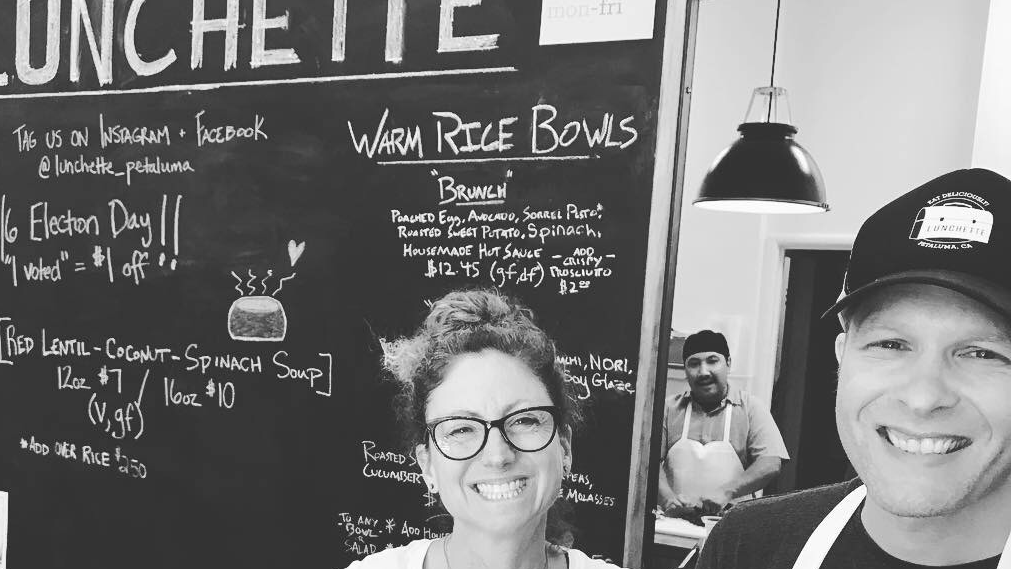 LUNCHETTE
mon-fri
TAG US ON INSTAGRAM + FACEBOOK
@lunchette_petaluma
6 Election Day!!
"I voted" = $1 off!!
[RED LENTIL-COCONUT-SPINACH SOUP]
12oz $7 / 16oz $10
(V, gf)
*ADD OVER RICE $2.50
WARM RICE BOWLS
"BRUNCH"
POACHED EGG, AVOCADO, SORREL PESTO*,
ROASTED SWEET POTATO, SPINACH,
HOUSEMADE HOT SAUCE
$12.45 (gf,df)
- ADD -
CRISPY
PROSCIUTTO
$2.00
NORI,
SOY GLAZE
ROASTED
CUCUMBER
MOLASSES
TO ANY
-BOWL-
SALAD
* ADD
EAT DELICIOUSLY!
LUNCHETTE
PETALUMA, CA